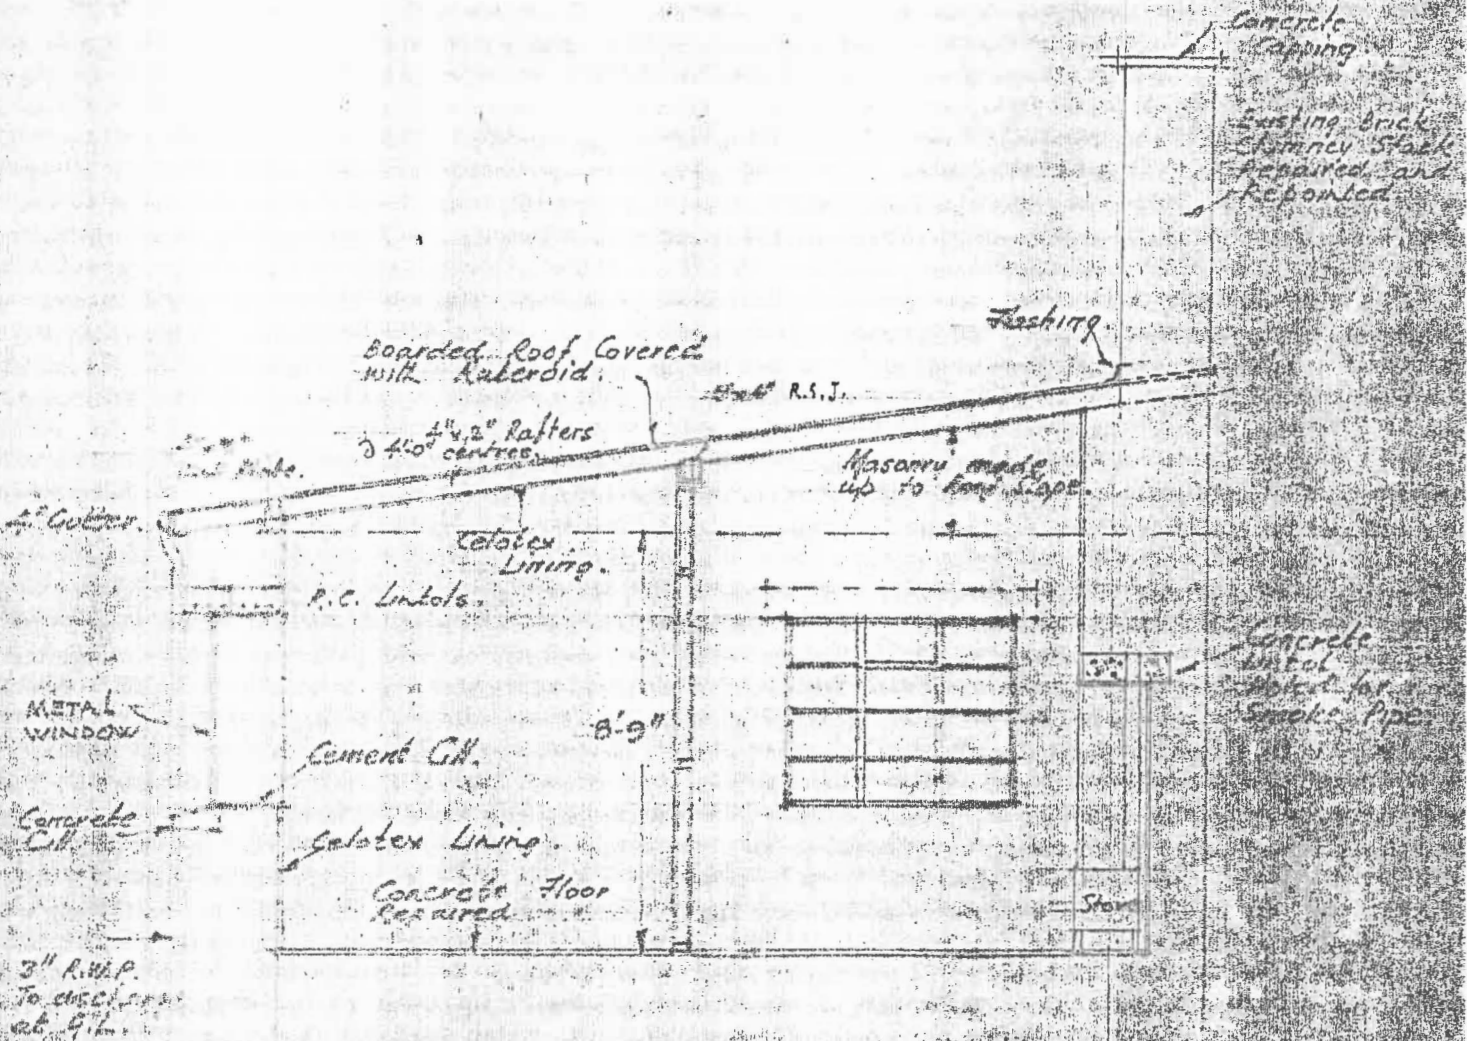 Concrete
Capping
Existing Brick
Chimney Stack
Repaired and
Repointed
Flashing
Boarded Roof Covered
with Ruberoid
R.S.J.
4" x 2" Rafters
centres
Masonry made
up to
4" Gutter
Celotex
Lining.
R.C. Lintols
Concrete
Lintol
Holed for
Smoke Pipe
METAL
WINDOW
8'-9"
Cement Cill.
Concrete
Cill
Celotex Lining.
Concrete Floor
Repaired
Stove
3" R.W.P.
To discharge
at G.L.